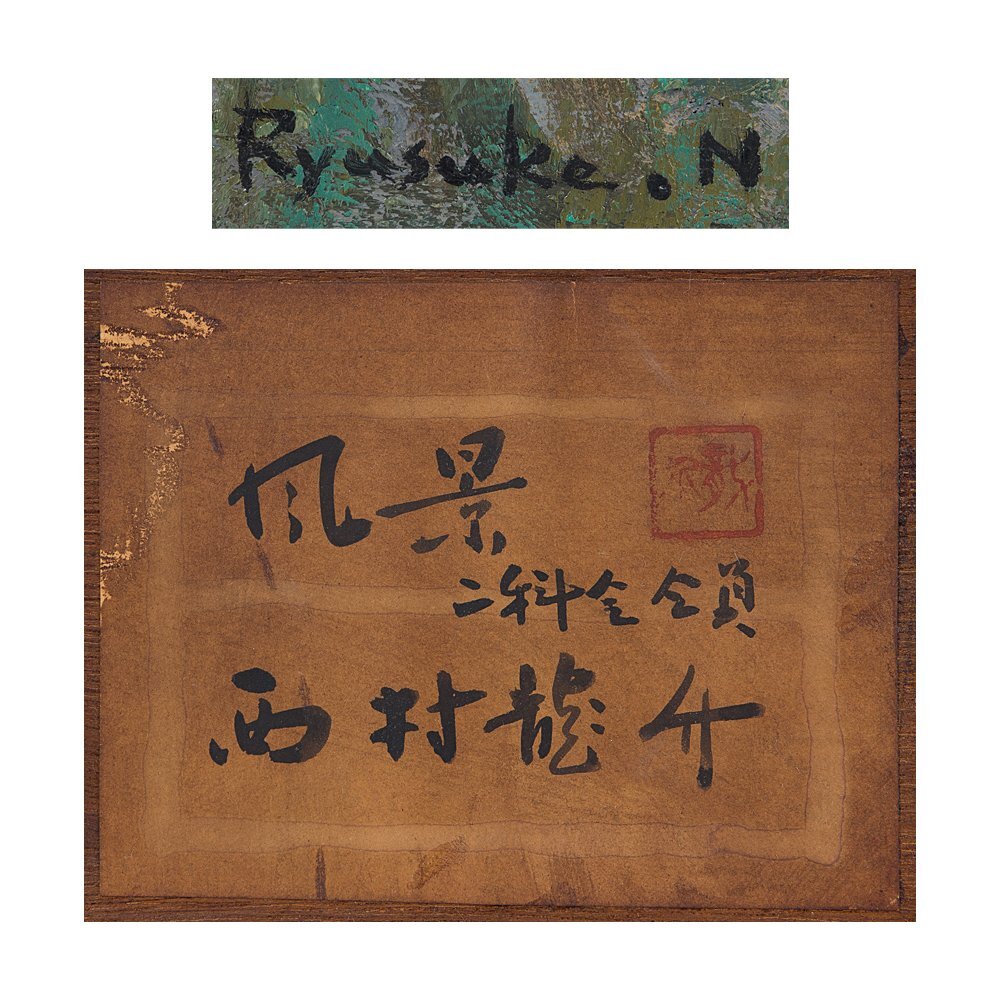 Ryusuke. N
风景
二科会会員
西村龍介